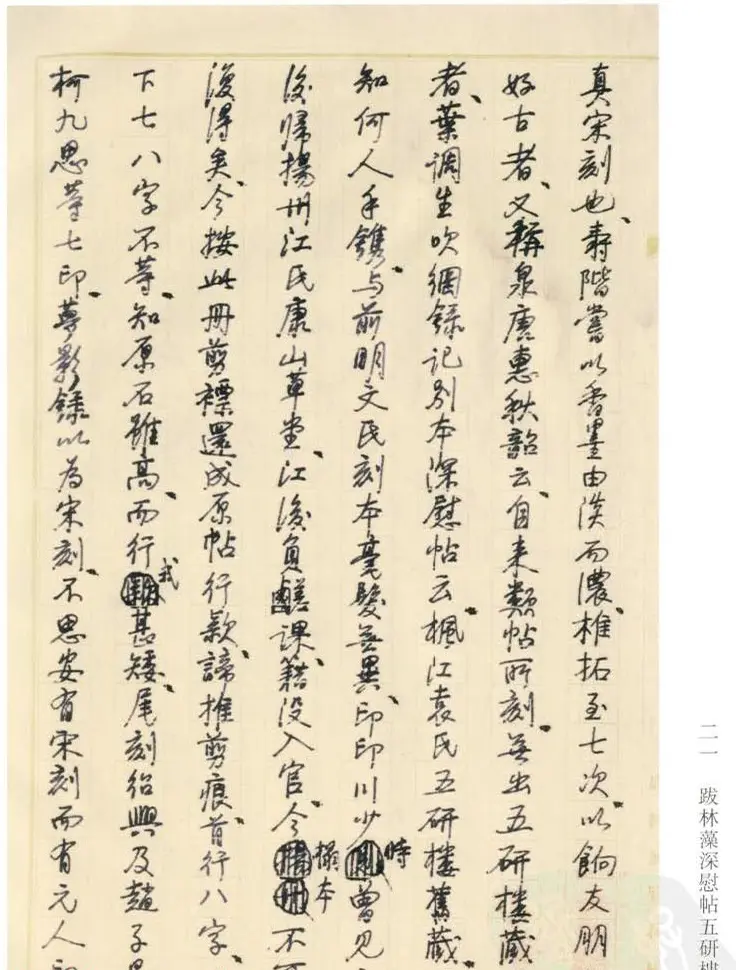 真宋刻也、壽階嘗以香墨由淡而濃、椎拓至七次、以餉友朋
好古者、又稱泉唐惠秋韶云、自来類帖所刻、無出五研樓藏
者、葉調生吹網錄記別本深慰帖云、楓江袁氏五研樓舊藏、
知何人手鐫、与前明文氏刻本毫髮無異、印印川少時曾見
後歸揚州江氏康山草堂、江後負鹺課、籍没入官、今搨本不
復得矣、今按此冊剪標還成原帖行款、諦推剪痕、首行八字、
下七八字不等、知原石雖高、而行甚矮、尾刻紹興及趙子
柯九思等七印、夢影錄以為宋刻、不思安有宋刻而有元人
二一 跋林藻深慰帖五研樓